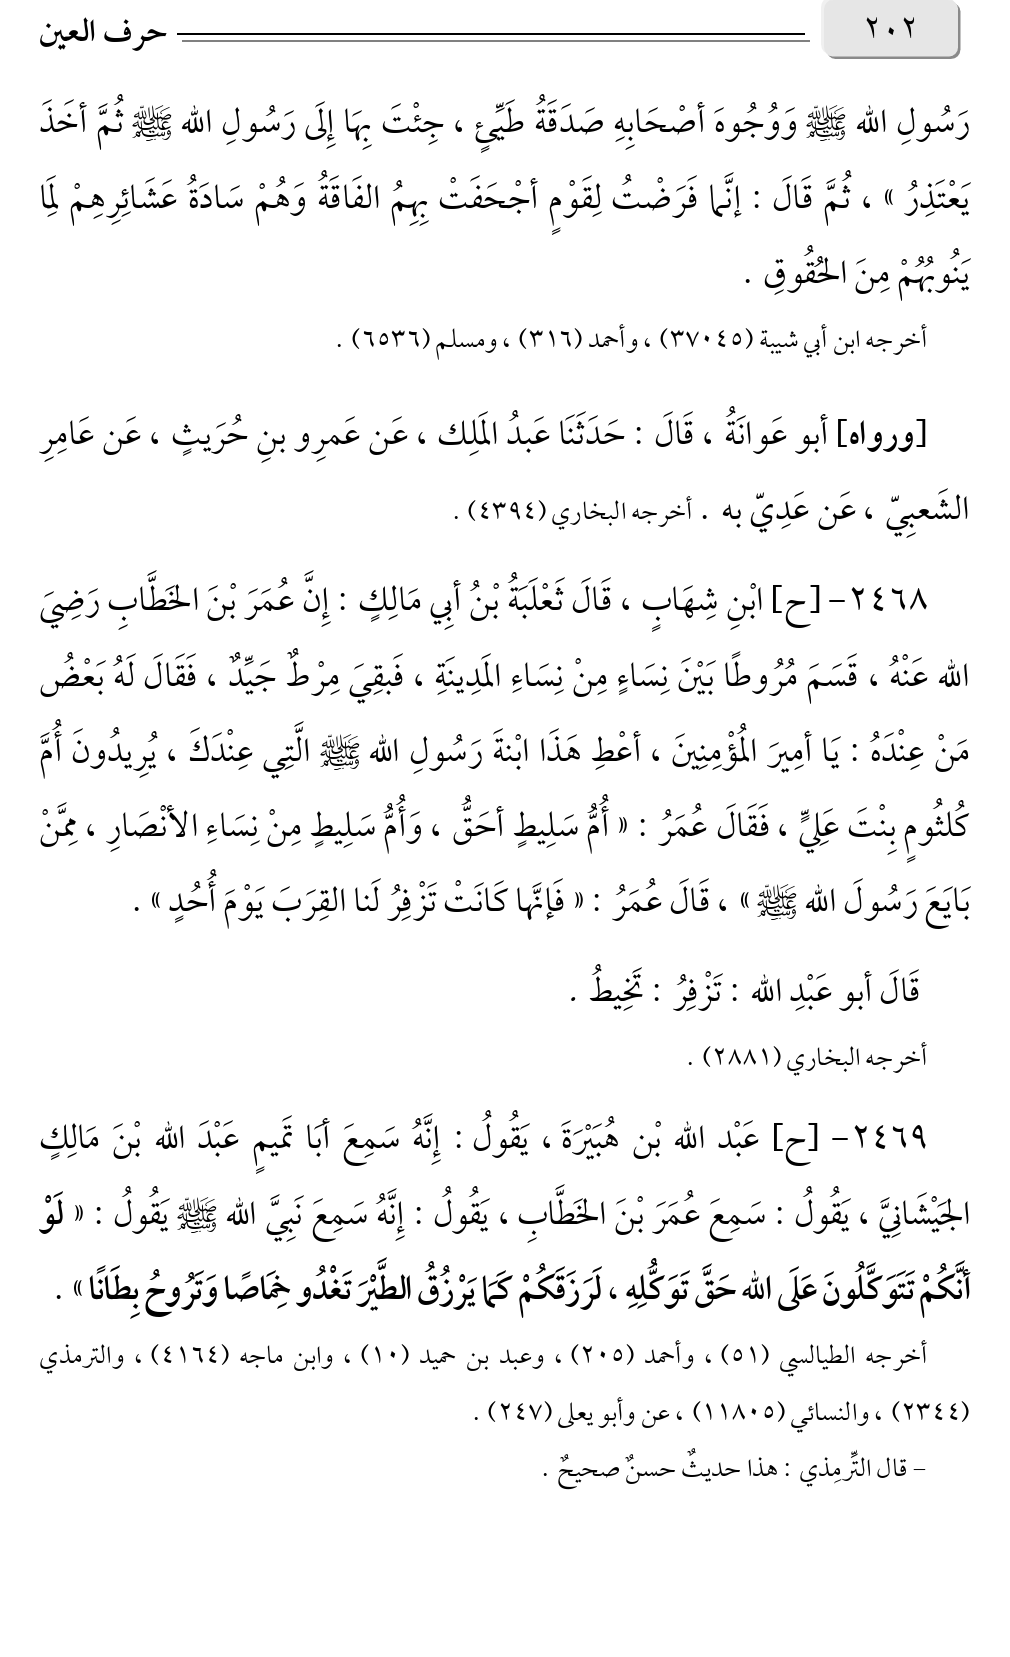 ٢٠٢
حرف العين
رَسُولِ الله ﷺ وَوُجُوهَ أصْحَابِهِ صَدَقَةُ طَيِّئٍ ، جِئْتَ بِهَا إِلَى رَسُولِ الله ﷺ ثُمَّ أخَذَ
يَعْتَذِرُ » ، ثُمَّ قَالَ : إنَّما فَرَضْتُ لِقَوْمٍ أجْحَفَتْ بِهِمُ الفَاقَةُ وَهُمْ سَادَةُ عَشَائِرِهِمْ لِمَا
يَنُوبُهُمْ مِنَ الحُقُوقِ .
أخرجه ابن أبي شيبة (٣٧٠٤٥) ، وأحمد (٣١٦) ، ومسلم (٦٥٣٦) .
[ورواه] أبو عَوانَةُ ، قَالَ : حَدَثَنَا عَبدُ المَلِك ، عَن عَمرِو بنِ حُرَيثٍ ، عَن عَامِرِ
الشَعبِيّ ، عَن عَدِيّ به . أخرجه البخاري (٤٣٩٤) .
٢٤٦٨- [ح] ابْنِ شِهَابٍ ، قَالَ ثَعْلَبَةُ بْنُ أبِي مَالِكٍ : إنَّ عُمَرَ بْنَ الخَطَّابِ رَضِيَ
الله عَنْهُ ، قَسَمَ مُرُوطًا بَيْنَ نِسَاءٍ مِنْ نِسَاءِ المَدِينَةِ ، فَبقِيَ مِرْطٌ جَيِّدٌ ، فَقَالَ لَهُ بَعْضُ
مَنْ عِنْدَهُ : يَا أمِيرَ المُؤْمِنِينَ ، أعْطِ هَذَا ابْنةَ رَسُولِ الله ﷺ الَّتِي عِنْدَكَ ، يُرِيدُونَ أُمَّ
كُلثُومٍ بِنْتَ عَلِيٍّ ، فَقَالَ عُمَرُ : « أُمُّ سَلِيطٍ أحَقُّ ، وَأُمُّ سَلِيطٍ مِنْ نِسَاءِ الأنْصَارِ ، مِمَّنْ
بَايَعَ رَسُولَ الله ﷺ » ، قَالَ عُمَرُ : « فَإنَّها كَانَتْ تَزْفِرُ لَنا القِرَبَ يَوْمَ أُحُدٍ » .
قَالَ أبو عَبْدِ الله : تَزْفِرُ : تَخِيطُ .
أخرجه البخاري (٢٨٨١) .
٢٤٦٩- [ح] عَبْد الله بْن هُبَيْرَةَ ، يَقُولُ : إِنَّهُ سَمِعَ أبَا تَميمٍ عَبْدَ الله بْنَ مَالِكٍ
الجَيْشَانِيَّ ، يَقُولُ : سَمِعَ عُمَرَ بْنَ الخَطَّابِ ، يَقُولُ : إِنَّهُ سَمِعَ نَبِيَّ الله ﷺ يَقُولُ : « لَوْ
أنَّكُمْ تَتَوَكَّلُونَ عَلَى الله حَقَّ تَوَكُّلِهِ ، لَرَزَقَكُمْ كَمَا يَرْزُقُ الطَّيْرَ تَغْدُو خِمَاصًا وَتَرُوحُ بِطَانًا » .
أخرجه الطيالسي (٥١) ، وأحمد (٢٠٥) ، وعبد بن حميد (١٠) ، وابن ماجه (٤١٦٤) ، والترمذي
(٢٣٤٤) ، والنسائي (١١٨٠٥) ، عن وأبو يعلى (٢٤٧) .
– قال التِّرمِذي : هذا حديثٌ حسنٌ صحيحٌ .